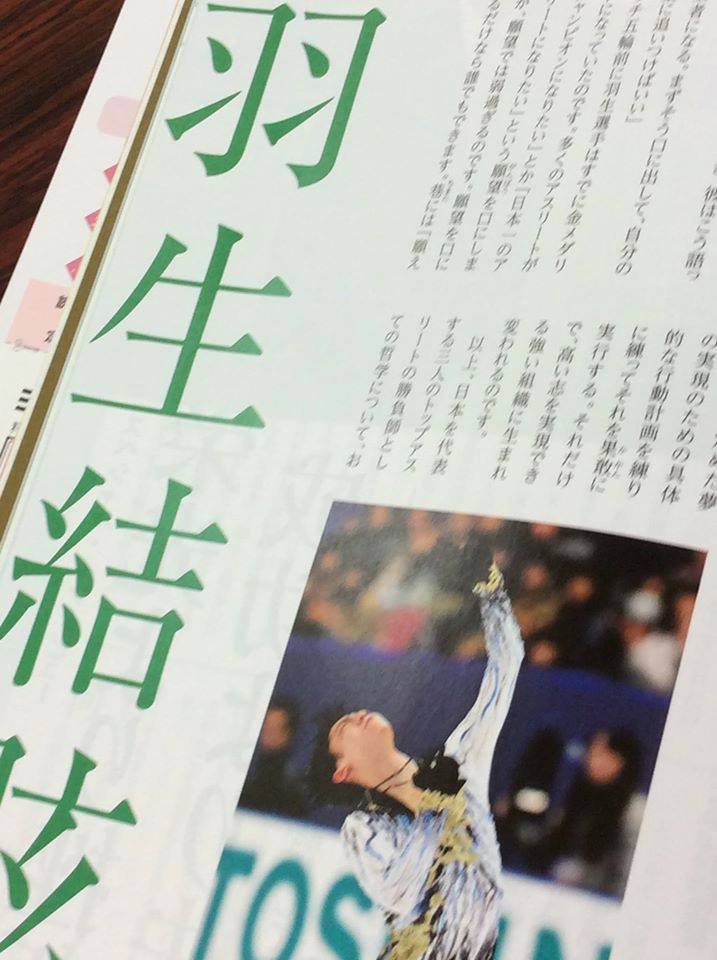 彼はこう語っ
者になる。まずそう口に出して、自分の
に追いつけばいい」
チ五輪前に羽生選手はすでに金メダリ
になっていたのです。多くのアスリートが
ャンピオンになりたい」とか「日本一のア
リートになりたい」という願望を口にしま
が、願望では弱過ぎるのです。願望を口に
るだけなら誰でもできます。巷には「願え
夢
の実現のための具体
的な行動計画を練り
に練ってそれを果敢に
実行する。それだけ
で、高い志を実現でき
る強い組織に生まれ
変われるのです。
以上、日本を代表
する三人のトップアス
リートの勝負師とし
ての哲学について、お
羽生結弦
TOS